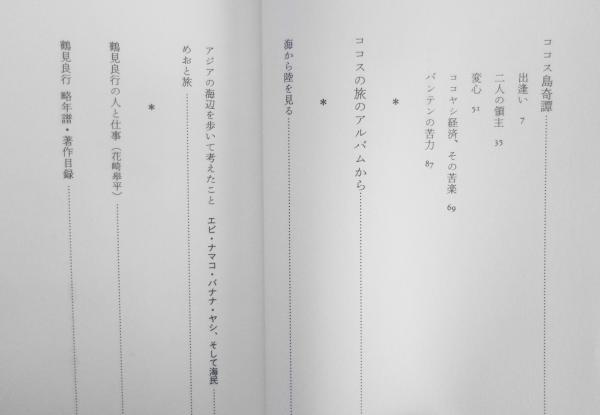 ココス島奇譚
出逢い 7
二人の領主 35
変心 51
ココヤシ経済、その苦楽 69
バンテンの苦力 87
*
ココスの旅のアルバムから
*
海から陸を見る
アジアの海辺を歩いて考えたこと エビ・ナマコ・バナナ・ヤシ、そして海民
めおと旅
*
鶴見良行の人と仕事(花崎皋平)
鶴見良行 略年譜・著作目録